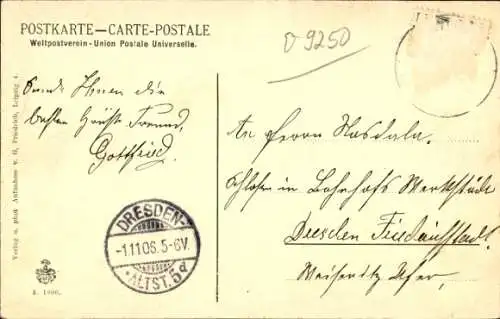 POSTKARTE—CARTE-POSTALE
Weltpostverein - Union Postale Universelle.
D 9250
Sende Ihnen die
besten Grüße Freund,
Gottfried.
Verlag u. phot. Aufnahme v. G. Friedrich, Leipzig 4.
DRESDEN-
-1.11 06. 5-6V.
* ALTST. 5 d
An Herrn
Schlosser in Bahnhofs Werkstädte
Dresden Friedrichstadt.
Weiseritz Ufer,